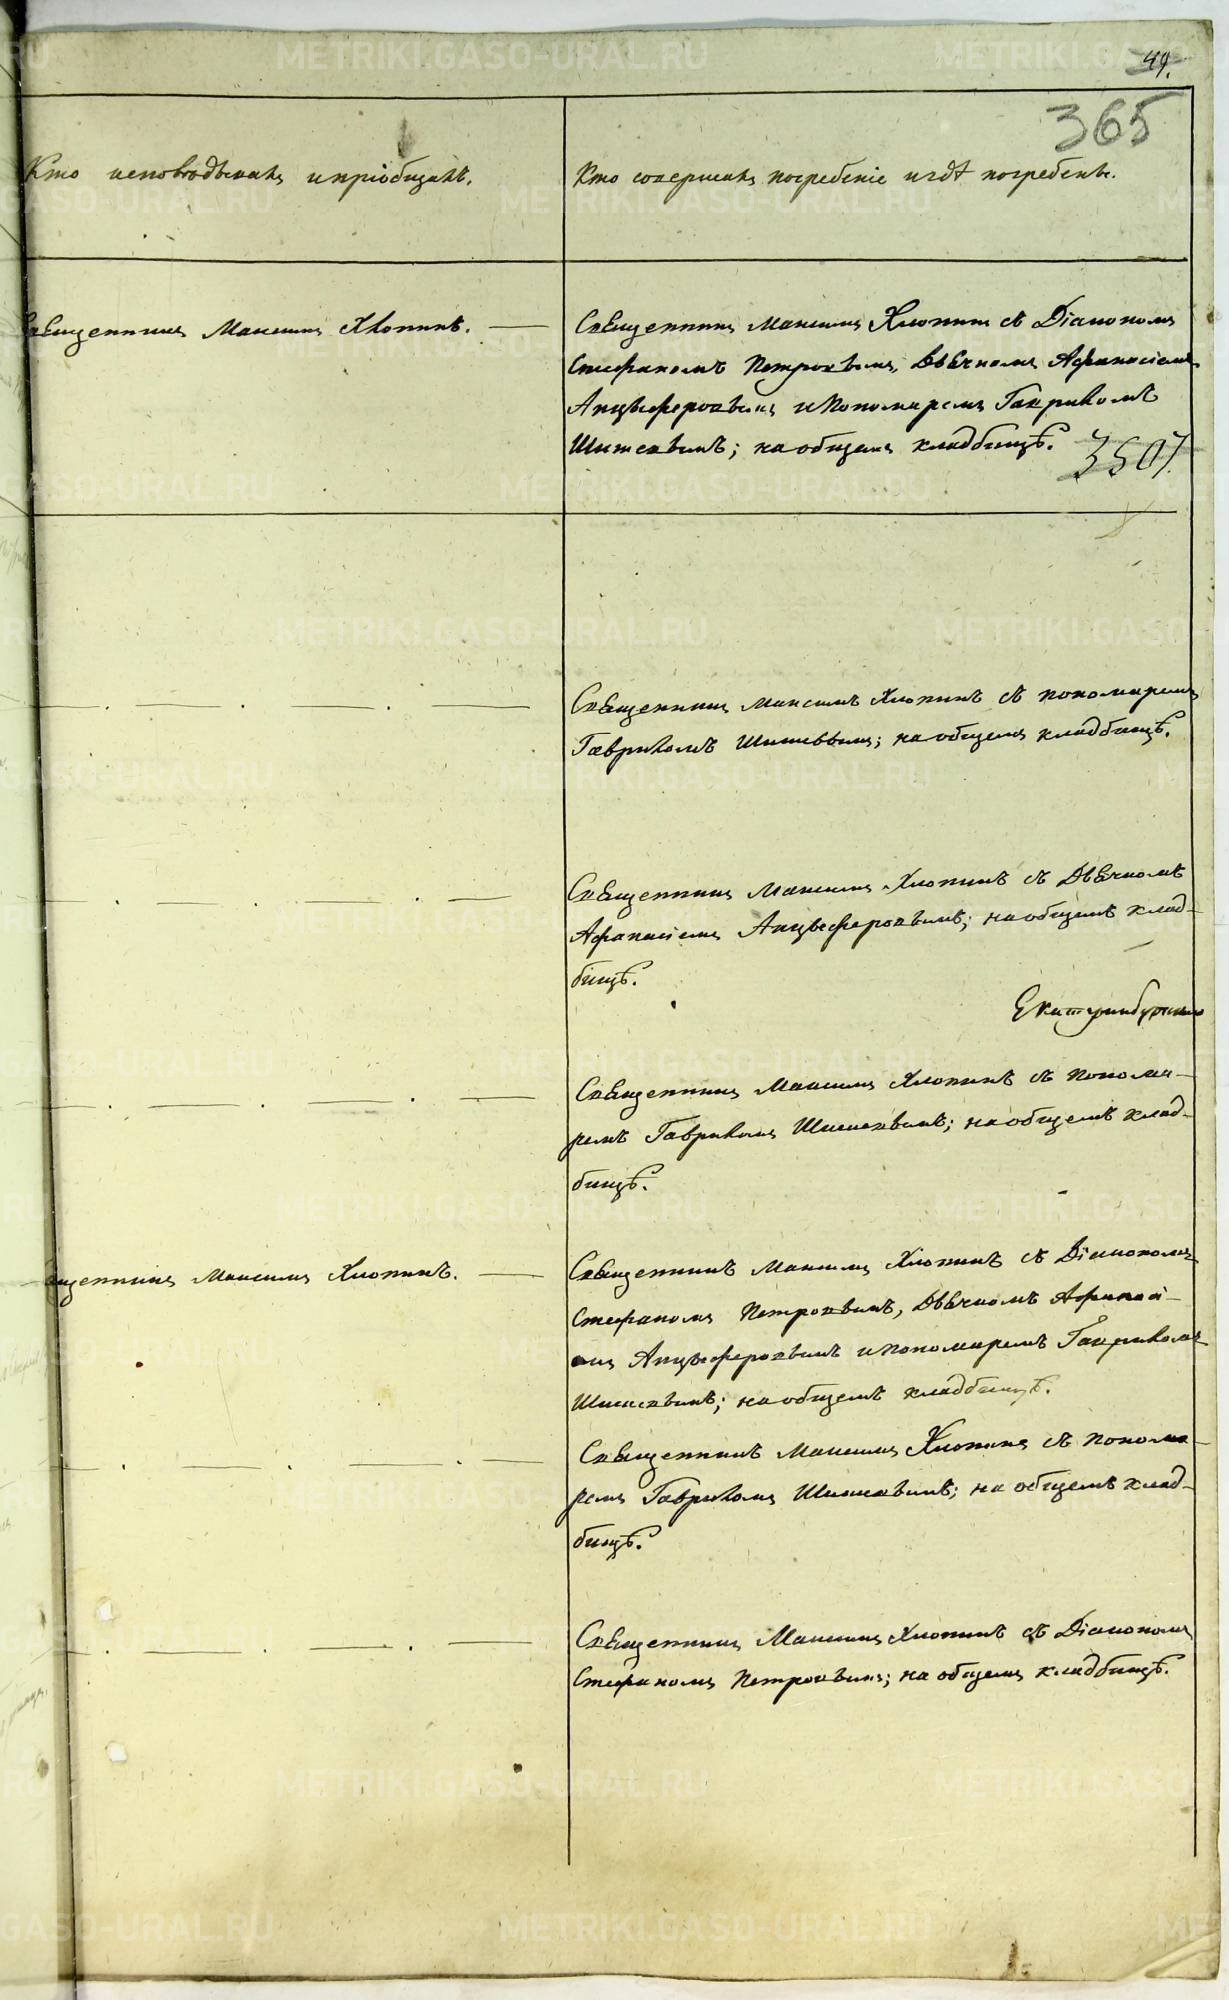 49.
365
Кто исповѣдывалъ и пріобщалъ.
Кто совершалъ погребеніе и гдѣ погребенъ.
Священникъ Максимъ Хлопинъ.
Священникъ Максимъ Хлопинъ съ Діакономъ
Стефаномъ Петровымъ, Дьячкомъ Афанасіемъ
Анцыферовымъ и Пономаремъ Гавріиломъ
Шишевымъ; на общемъ кладбищѣ.
3507.
Священникъ Максимъ Хлопинъ съ пономаремъ
Гавріиломъ Шишевымъ; на общемъ кладбищѣ.
Священникъ Максимъ Хлопинъ съ Дьячкомъ
Афанасіемъ Анцыферовымъ; на общемъ клад-
бищѣ.
Екатеринбургскаго
Священникъ Максимъ Хлопинъ съ понома-
ремъ Гавріиломъ Шишевымъ; на общемъ клад-
бищѣ.
щенникъ Максимъ Хлопинъ.
Священникъ Максимъ Хлопинъ съ Діакономъ
Стефаномъ Петровымъ, Дьячкомъ Афанасі-
емъ Анцыферовымъ и пономаремъ Гавріиломъ
Шишевымъ; на общемъ кладбищѣ.
Священникъ Максимъ Хлопинъ съ понома-
ремъ Гавріиломъ Шишевымъ; на общемъ клад-
бищѣ.
Священникъ Максимъ Хлопинъ съ Діакономъ
Стефаномъ Петровымъ; на общемъ кладбищѣ.
METRIKI.GASO-URAL.RU